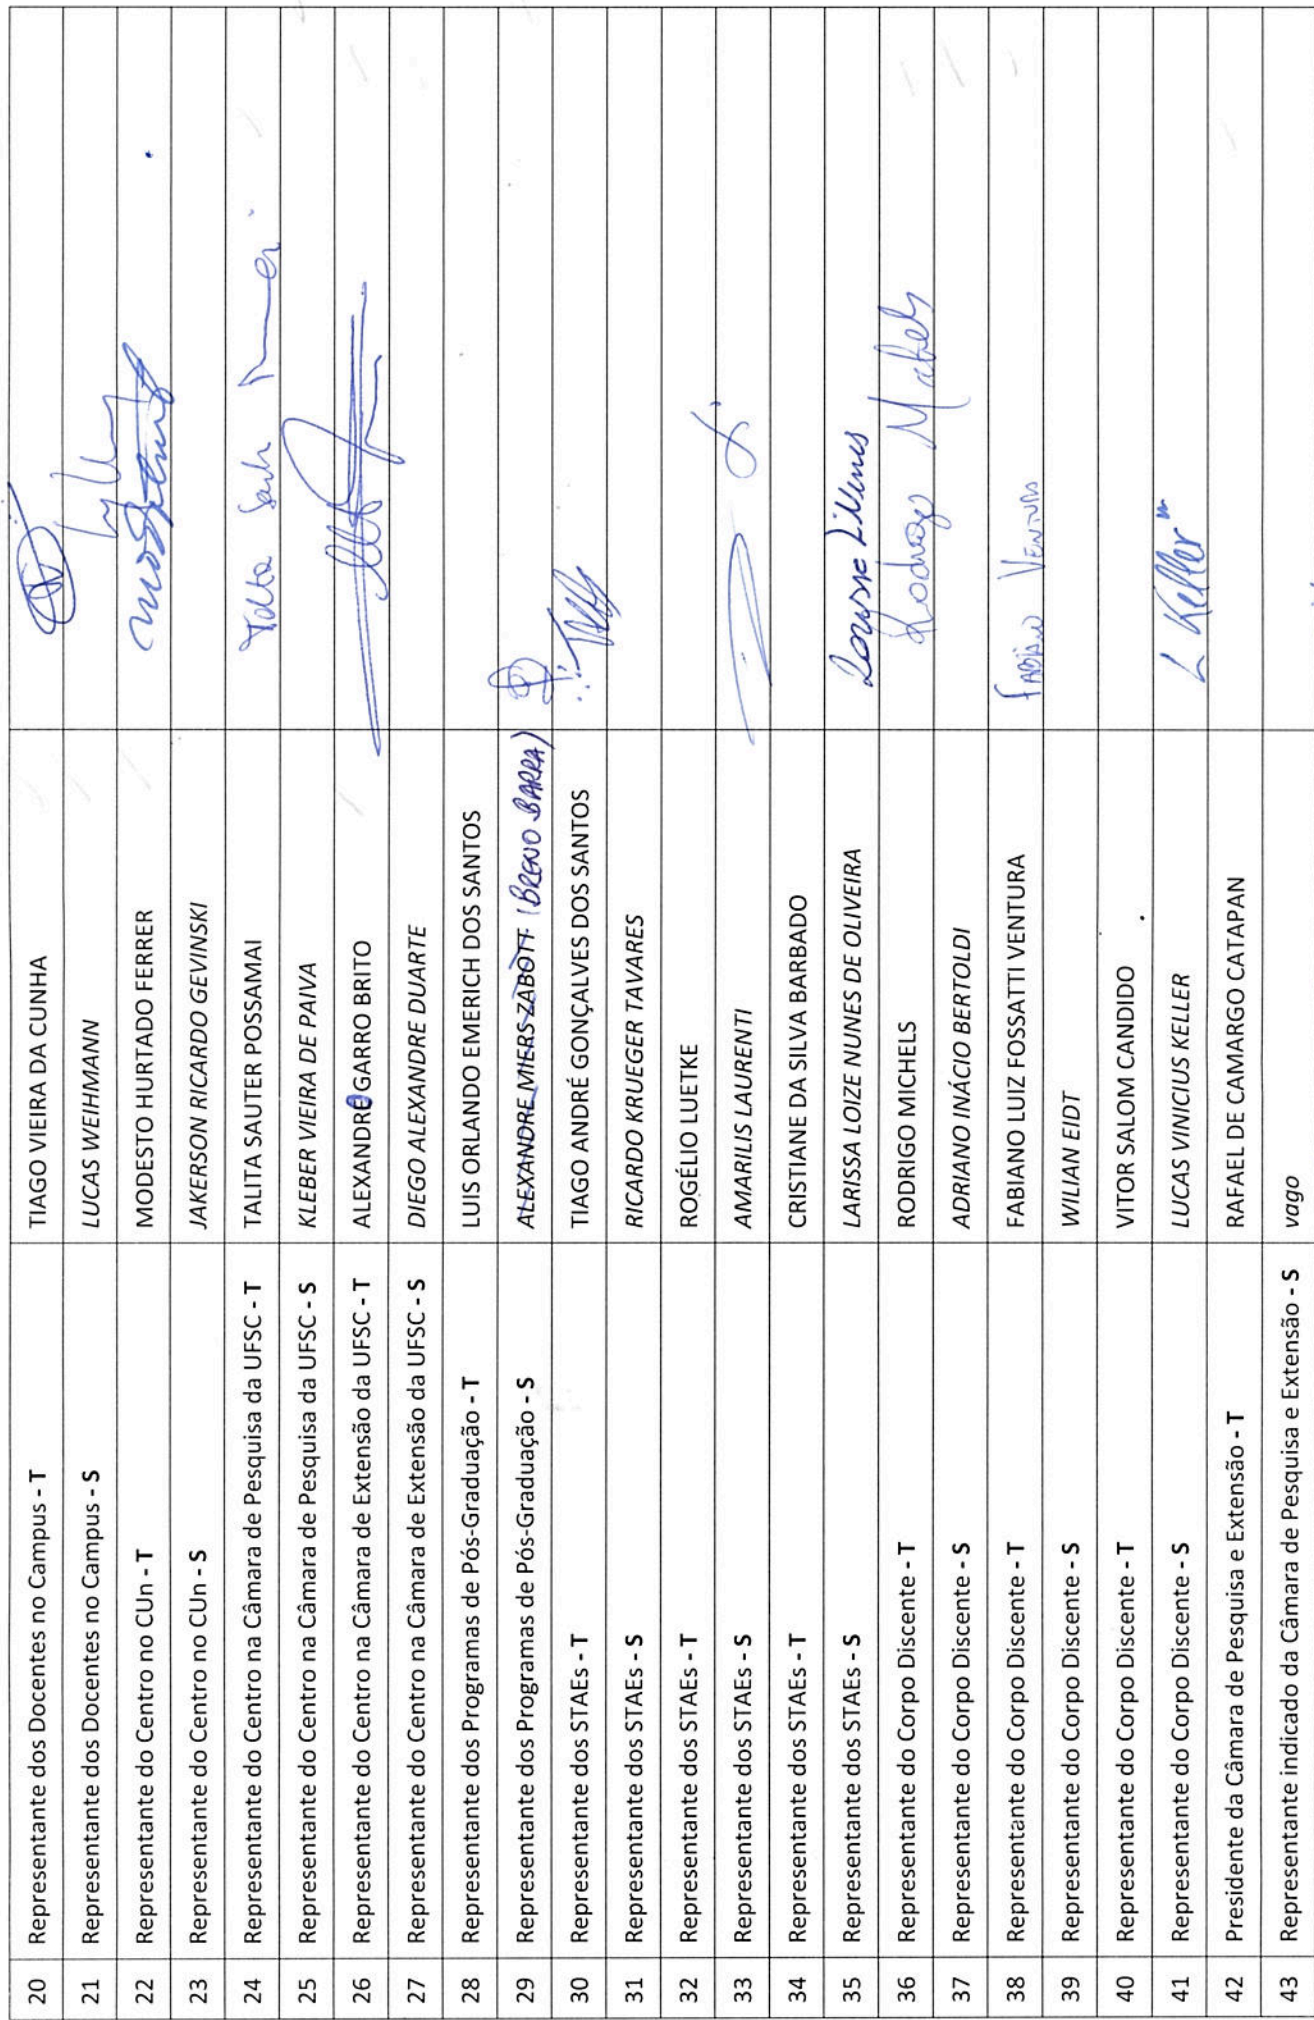 20 Representante dos Docentes no Campus - T TIAGO VIEIRA DA CUNHA
21 Representante dos Docentes no Campus - S LUCAS WEIHMANN
22 Representante do Centro no CUn - T MODESTO HURTADO FERRER
23 Representante do Centro no CUn - S JAKERSON RICARDO GEVINSKI
24 Representante do Centro na Câmara de Pesquisa da UFSC - T TALITA SAUTER POSSAMAI
25 Representante do Centro na Câmara de Pesquisa da UFSC - S KLEBER VIEIRA DE PAIVA
26 Representante do Centro na Câmara de Extensão da UFSC - T ALEXANDRO GARRO BRITO
27 Representante do Centro na Câmara de Extensão da UFSC - S DIEGO ALEXANDRE DUARTE
28 Representante dos Programas de Pós-Graduação - T LUIS ORLANDO EMERICH DOS SANTOS
29 Representante dos Programas de Pós-Graduação - S ALEXANDRE MIERS ZABOTT (BRENO BARRA)
30 Representante dos STAEs - T TIAGO ANDRÉ GONÇALVES DOS SANTOS
31 Representante dos STAEs - S RICARDO KRUEGER TAVARES
32 Representante dos STAEs - T ROGÉLIO LUETKE
33 Representante dos STAEs - S AMARILIS LAURENTI
34 Representante dos STAEs - T CRISTIANE DA SILVA BARBADO
35 Representante dos STAEs - S LARISSA LOIZE NUNES DE OLIVEIRA
36 Representante do Corpo Discente - T RODRIGO MICHELS Rodrigo Michels
37 Representante do Corpo Discente - S ADRIANO INÁCIO BERTOLDI
38 Representante do Corpo Discente - T FABIANO LUIZ FOSSATTI VENTURA FABIANO VENTURA
39 Representante do Corpo Discente - S WILIAN EIDT
40 Representante do Corpo Discente - T VITOR SALOM CANDIDO
41 Representante do Corpo Discente - S LUCAS VINICIUS KELLER L Keller
42 Presidente da Câmara de Pesquisa e Extensão - T RAFAEL DE CAMARGO CATAPAN
43 Representante indicado da Câmara de Pesquisa e Extensão - S vago